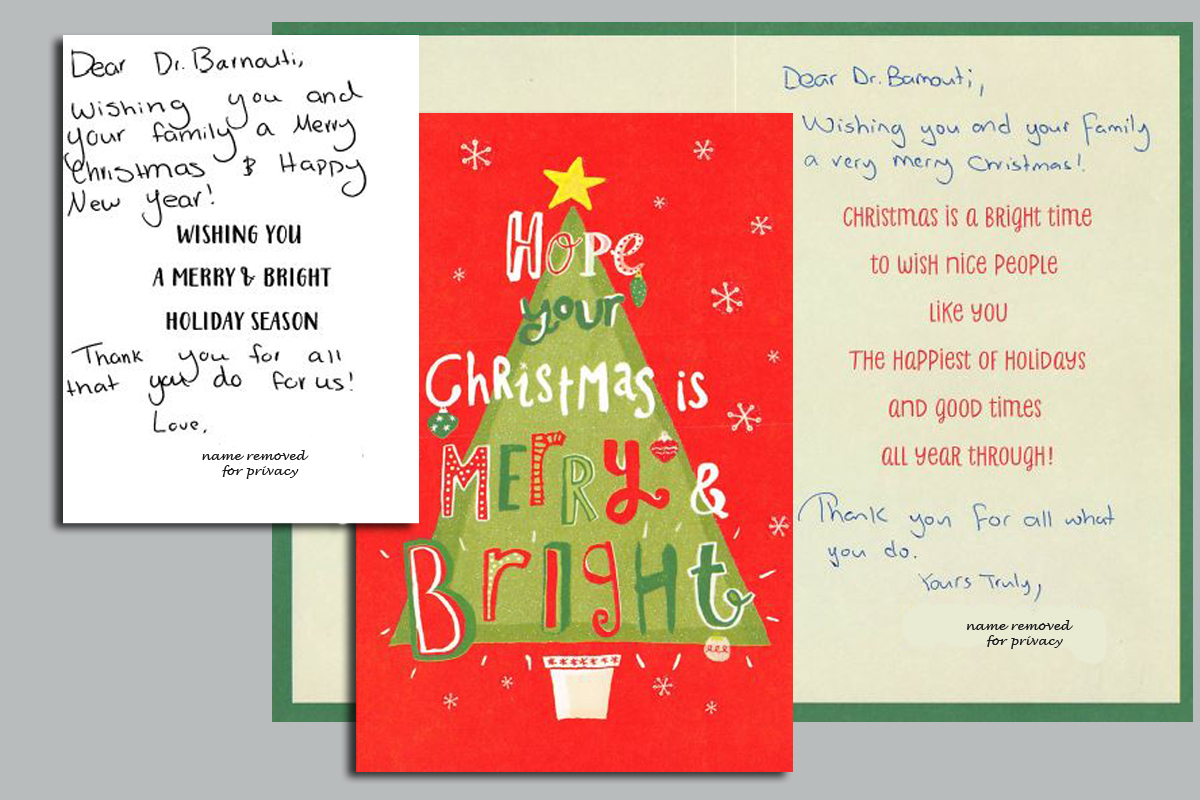 Dear Dr. Barnouti,
Wishing you and
your family a Merry
Christmas & Happy
New Year!
WISHING YOU
A MERRY & BRIGHT
HOLIDAY SEASON
Thank you for all
that you do for us!
Love,
name removed
for privacy
Hope
your
Christmas is
Merry &
Bright
Dear Dr. Barnouti,
Wishing you and your family
a very merry Christmas!
CHRistmas is a BRight time
to wish nice PeoPle
like you
The HaPPiest of Holidays
and good times
all year through!
Thank you for all what
you do.
Yours Truly,
name removed
for privacy